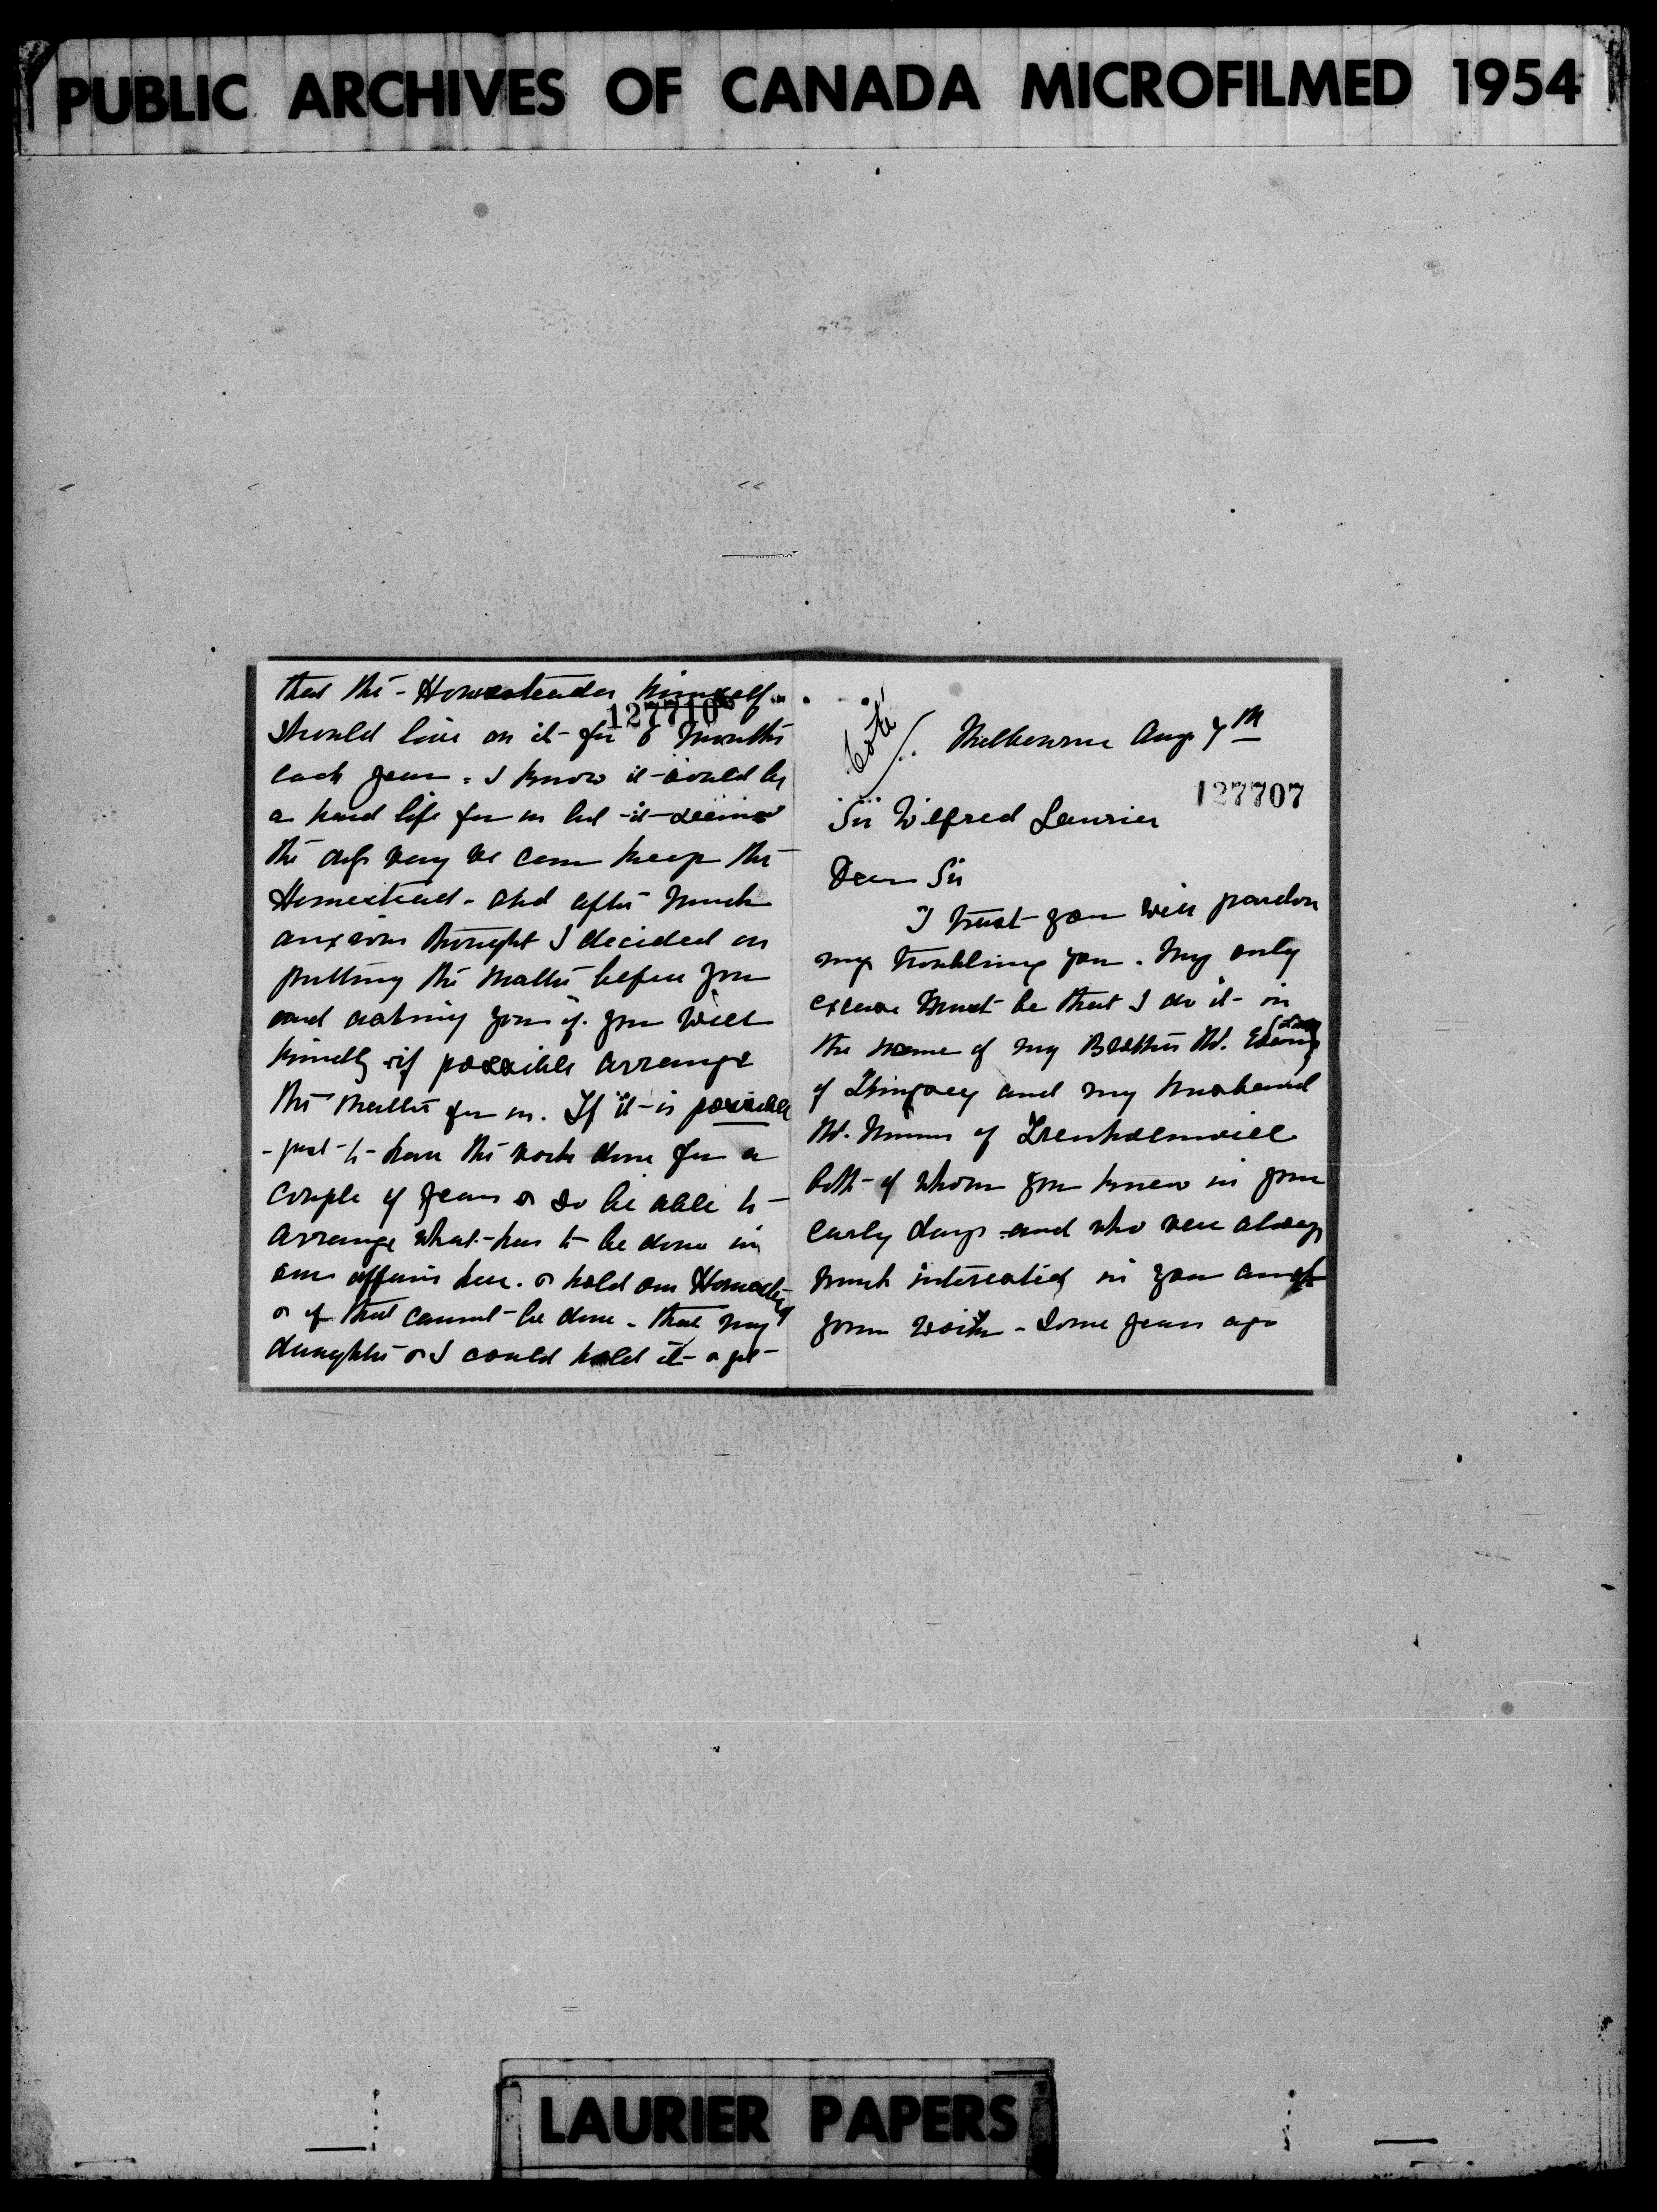 PUBLIC ARCHIVES OF CANADA MICROFILMED 1954
that the - Homesteader himself
127710
should live on it for 6 months
each year. I know it would be
a hard life for us but it seems
the only way we can keep the
Homestead - and after much
anxious thought I decided on
putting the matter before you
and asking you if you will
kindly if possible arrange
the matter for us. If it is possible
- just to have the work done for a
couple of years or so be able to
arrange what has to be done in
our affairs here. or hold our
or if that cannot be done - that my
daughter or I could hold it
Coté
Melbourne Aug 7th
127707
Sir Wilfred Laurier
Dear Sir
I trust you will pardon
my troubling you. My only
excuse must be that I do it in
the name of my Brother W.
of Kingsey and my husband
W. of Trenholmville
both of whom you knew in your
early days and who were always
much interested in you and
your work - Some years ago
LAURIER PAPERS